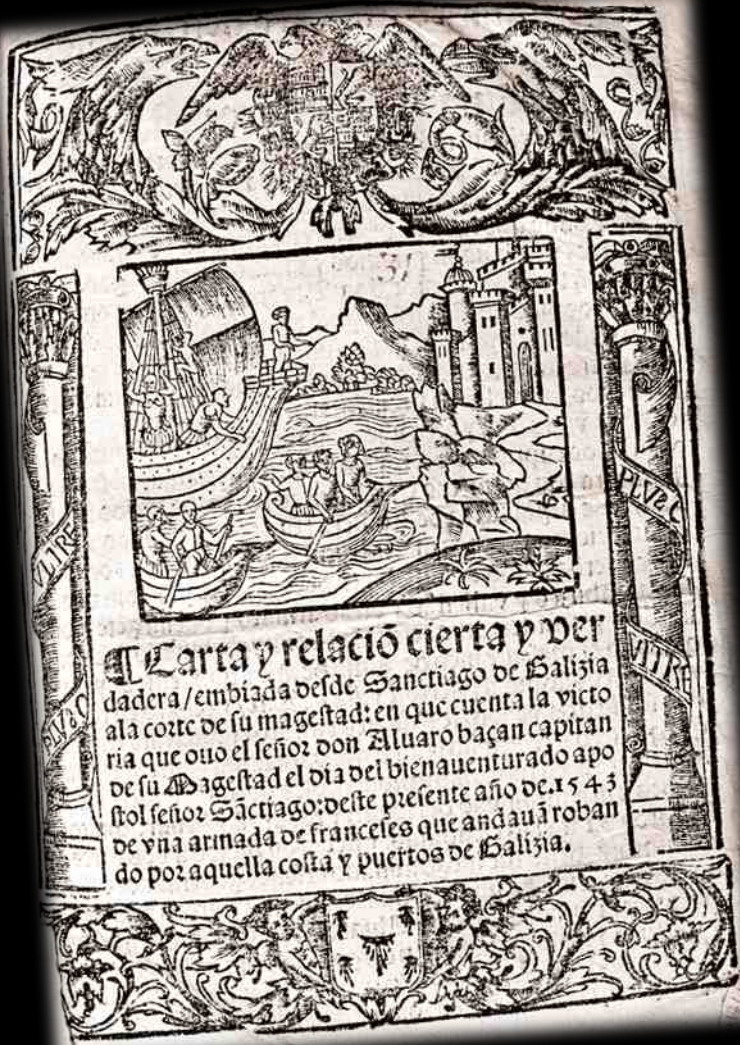 31
VLTRE
PLVS
PLVS
VLTRE
¶ Carta y relaciõ cierta y ver
dadera/embiada desde Sanctiago de Galizia
ala corte de su magestad: en que cuenta la victo
ria que ouo el señor don Aluaro baçan capitan
de su Magestad el dia del bienauenturado apo
stol señor Sãctiago: deste presente año de.1543
de vna armada de franceses que andauã roban
do por aquella costa y puertos de Galizia.